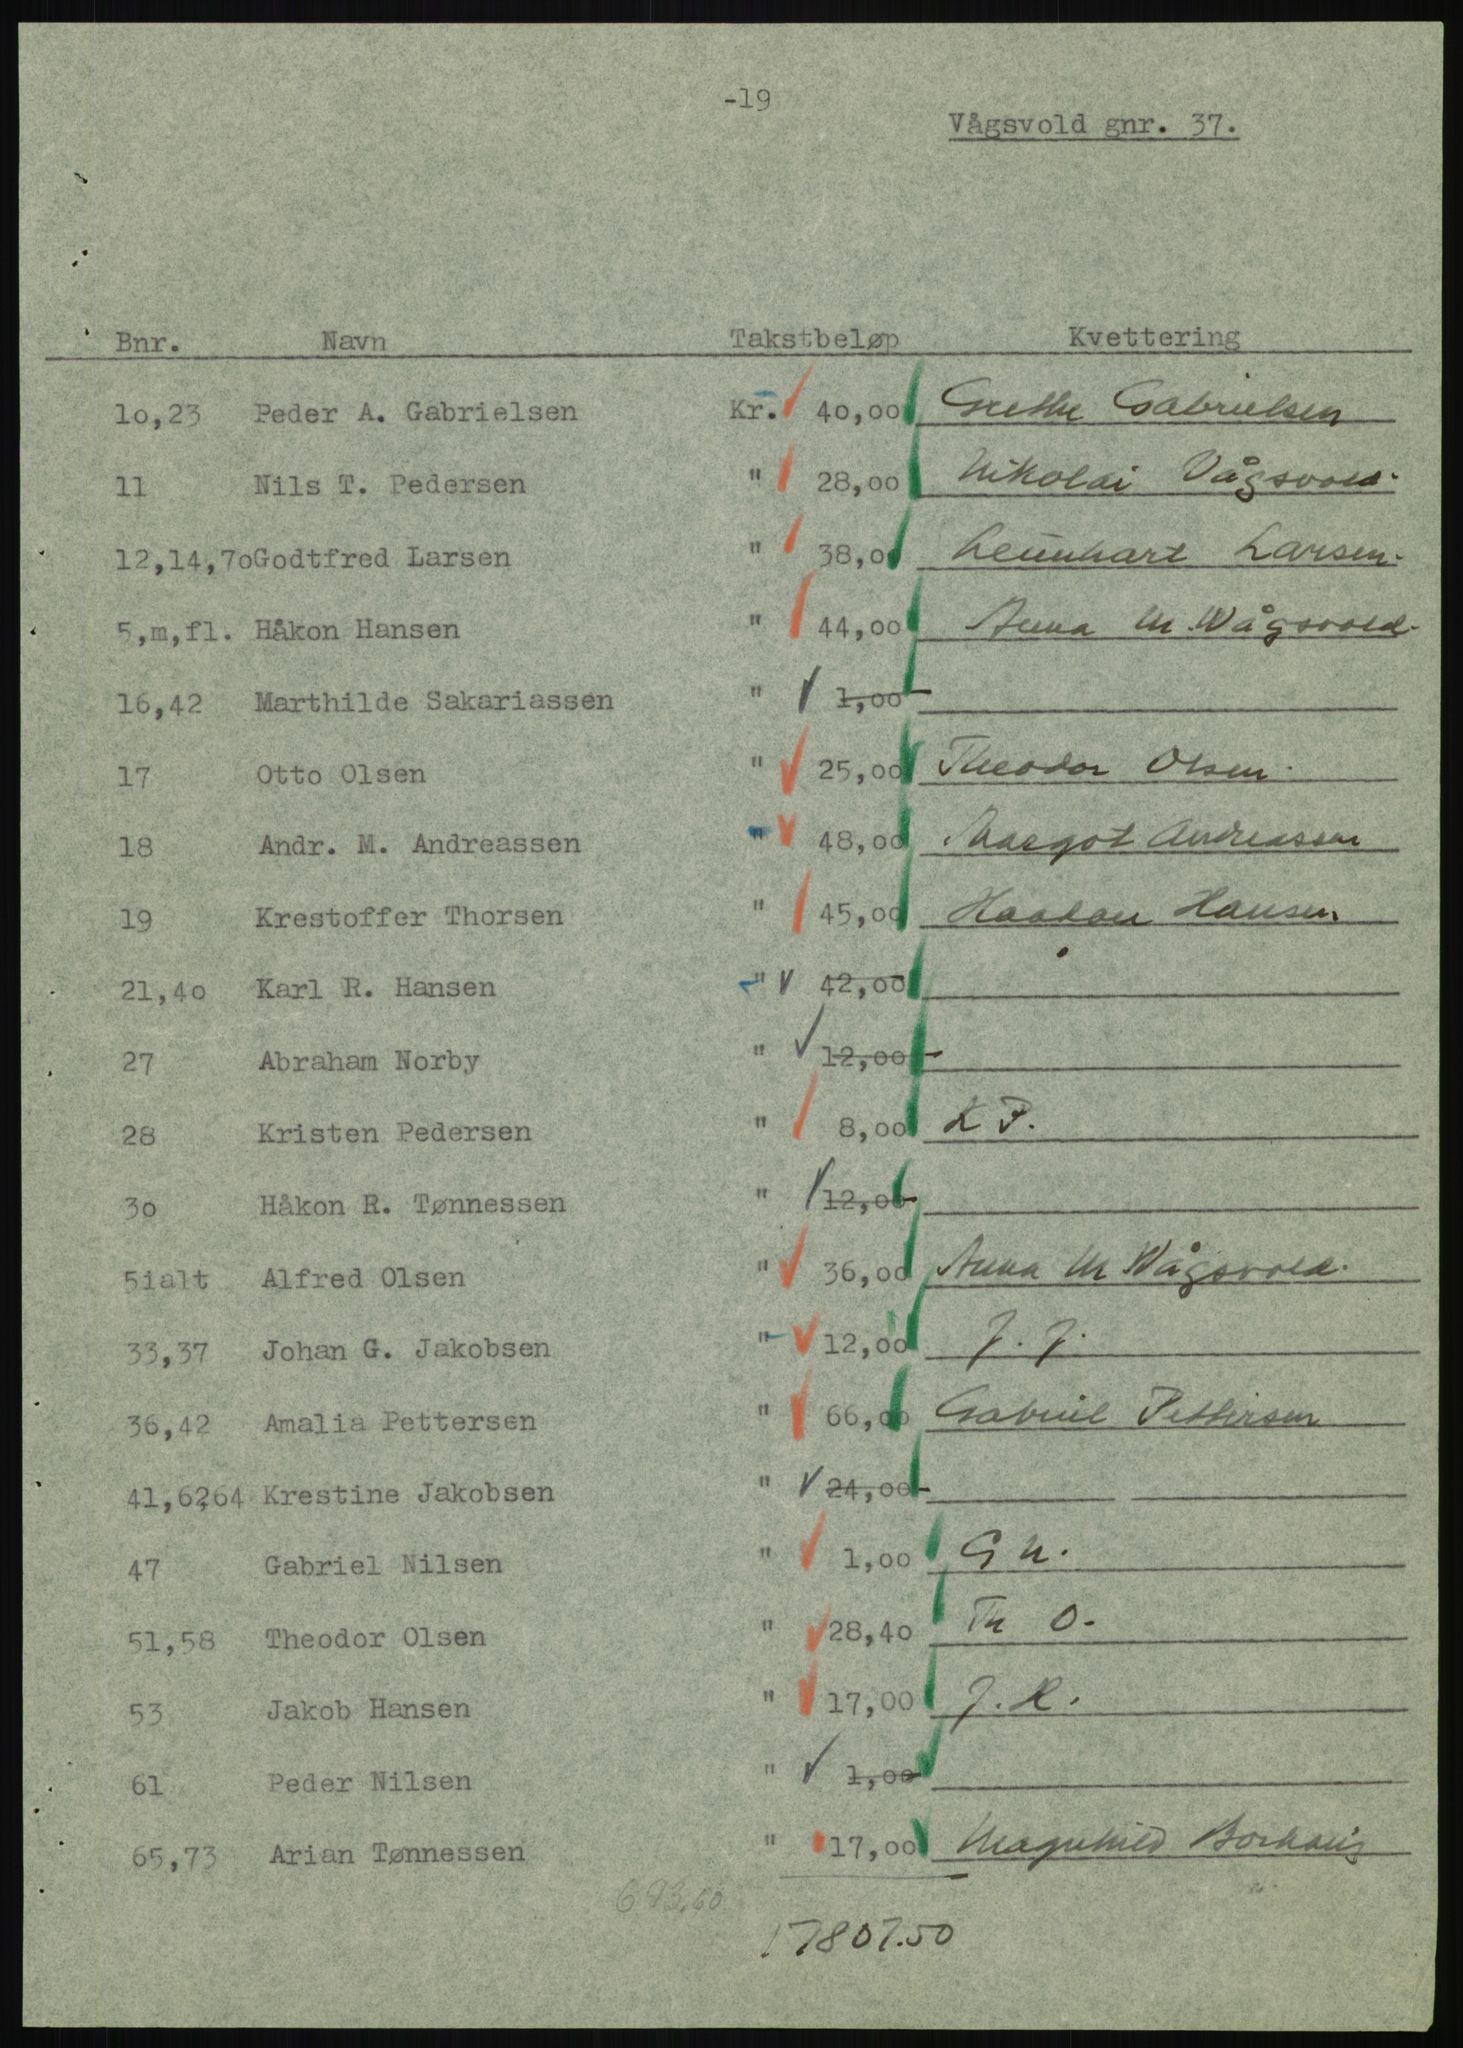 -19
Vågsvold gnr. 37.
Bnr. Navn Takstbeløp Kvettering
1o,23 Peder A. Gabrielsen Kr. 4o,oo Grethe Gabrielsen
11 Nils T. Pedersen " 28,oo Nikolai Vågsvold.
12,14,7oGodtfred Larsen " 38,oo Leinhart Larsen.
5,m,fl. Håkon Hansen " 44,oo Anna M. Wågsvold.
16,42 Marthilde Sakariassen " 1,oo
17 Otto Olsen " 25,oo Theodor Olsen.
18 Andr. M. Andreassen " 48,oo Margot Andreassen
19 Krestoffer Thorsen " 45,oo Haakon Hansen
21,4o Karl R. Hansen " 42,oo
27 Abraham Norby " 12,oo
28 Kristen Pedersen " 8,oo K P.
3o Håkon R. Tønnessen " 12,oo
5ialt Alfred Olsen " 36,oo Anna M Wågsvold.
33,37 Johan G. Jakobsen " 12,oo J. J.
36,42 Amalia Pettersen " 66,oo Gabriel Pettersen
41,62,64 Krestine Jakobsen " 24,oo
47 Gabriel Nilsen " 1,oo G N.
51,58 Theodor Olsen " 28,4o Th O.
53 Jakob Hansen " 17,oo J. H.
61 Peder Nilsen " 1,oo
65,73 Arian Tønnessen " 17,oo Magnhild
693,60
17807.50